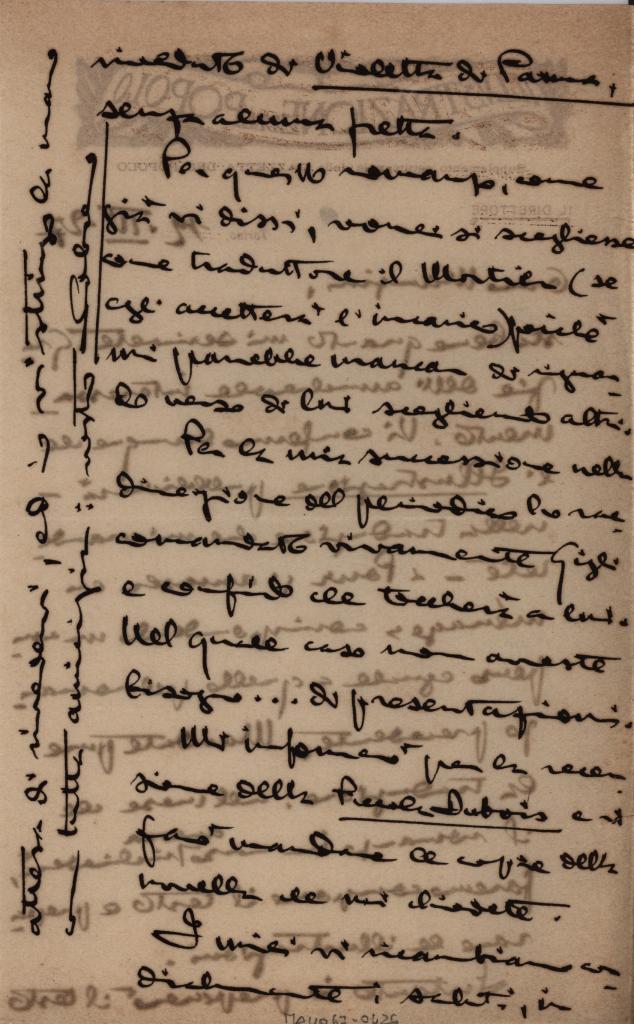 riveduto di Violetta di Parma,
senza alcuna fretta.
Per questo romanzo, come
già vi dissi, vorrei si scegliesse
come traduttore il Mortier (se
egli accetterà l'incarico) poichè
mi parrebbe mancar di riguar-
do verso di lui scegliendo altri.
Per la mia successione nella
direzione del periodico ho rac-
comandato vivamente Gigli
e confido che toccherà a lui.
Nel quale caso non avreste
bisogno... di presentazioni.
Mi informerò per la recen-
sione della Piccola Dubois e vi
farò mandare le copie della
novella che mi chiedete.
I miei vi ricambiano cor-
dialmente i saluti, in
attesa di rivedervi, ed io vi stringo la mano
con tutta amicizia: vostro
MAU067-0426